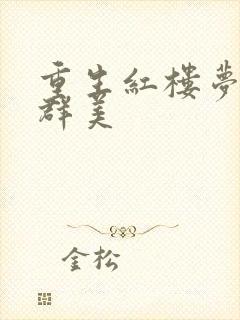 重生紅樓夢
群美
金松